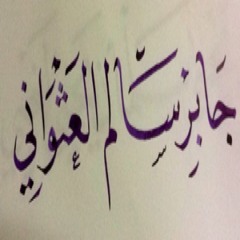 جَابِر سَّالِم العَثْوَانِي